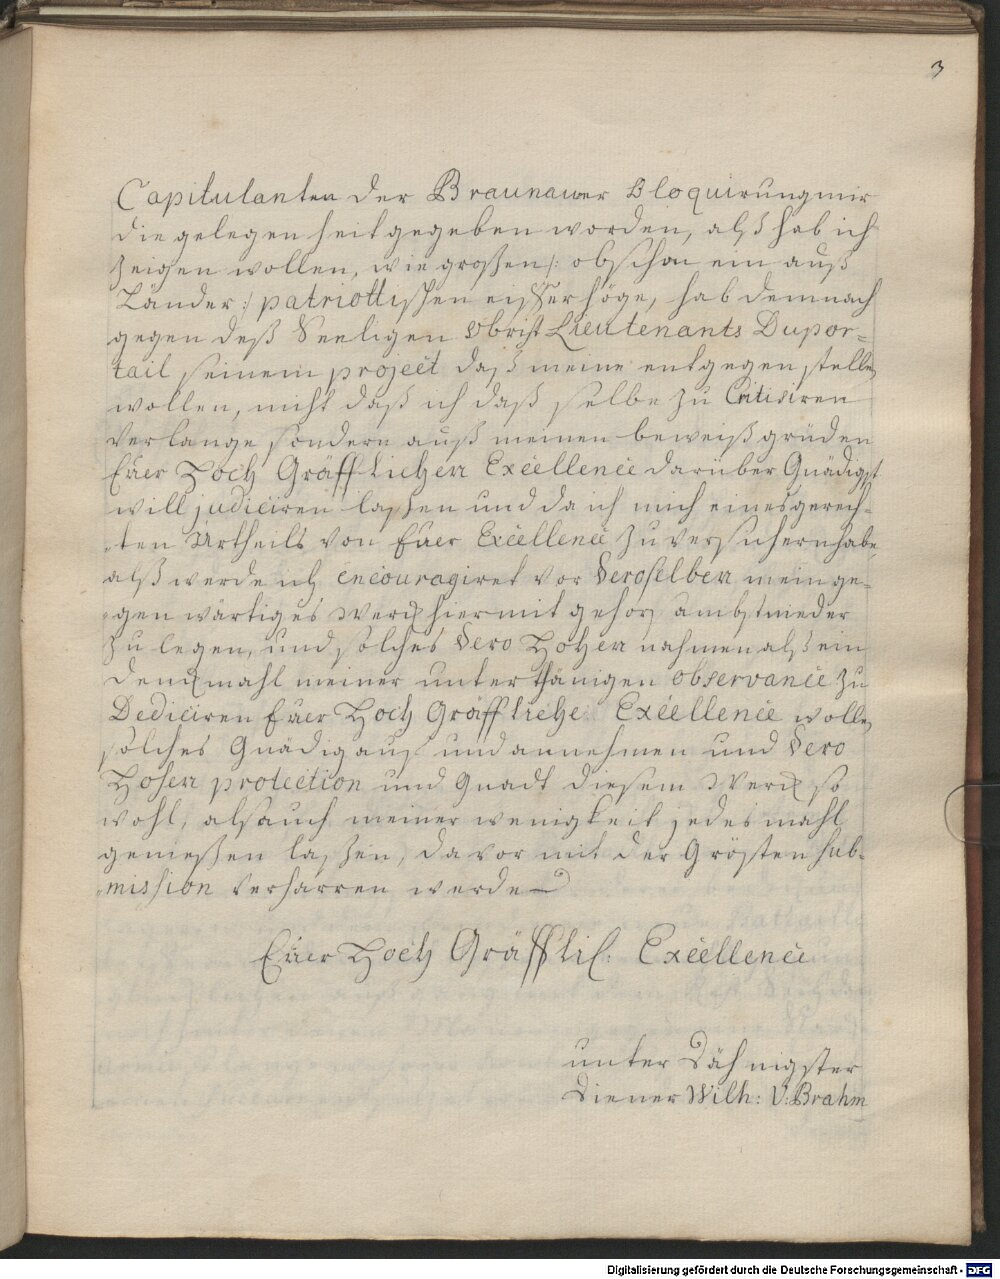 3
Capitulanten der Braunauer Bloquirung mir
die gelegenheit gegeben worden, alß hab ich
zeigen wollen, wie großen /: obschon ein auß
Länder :/ patriottischen eiffer höge, hab demnach
gegen deß Seeligen Obrist Lieutenants Dupor-
tail seinem project daß meine entgegen stellen
wollen, nicht daß ich daß selbe zu Critisiren
verlange sondern auß meinen beweiß grüden
Eüer Hoch Gräfflichen Excellence darüber Gnädigst
will judiciren laßen und da ich mich eines gerech-
-ten Urtheils von Eüer Excellence zu versichern habe,
alß werde ich encouragiret vor Deroselben mein ge-
-gen wärtiges Werck hiermit gehorsambst nieder
zu legen, und solches Dero Hohen nahmen alß ein
denckmahl meiner unterthänigen observance zu
Dediciren Eüer Hoch Gräffliche Excellence wollen
solches Gnädig auf und annehmen und Dero
Hohen protection und Gnadt diesem Werck so
wohl, als auch meiner wenigkeit jedes mahl
genießen laßen, davor mit der Grösten sub-
-mission verharren werde
Eüer Hoch Gräffl: Excellence
unter Dähnigster
Diener Wilh: V: Brahm
Digitalisierung gefördert durch die Deutsche Forschungsgemeinschaft - DFG